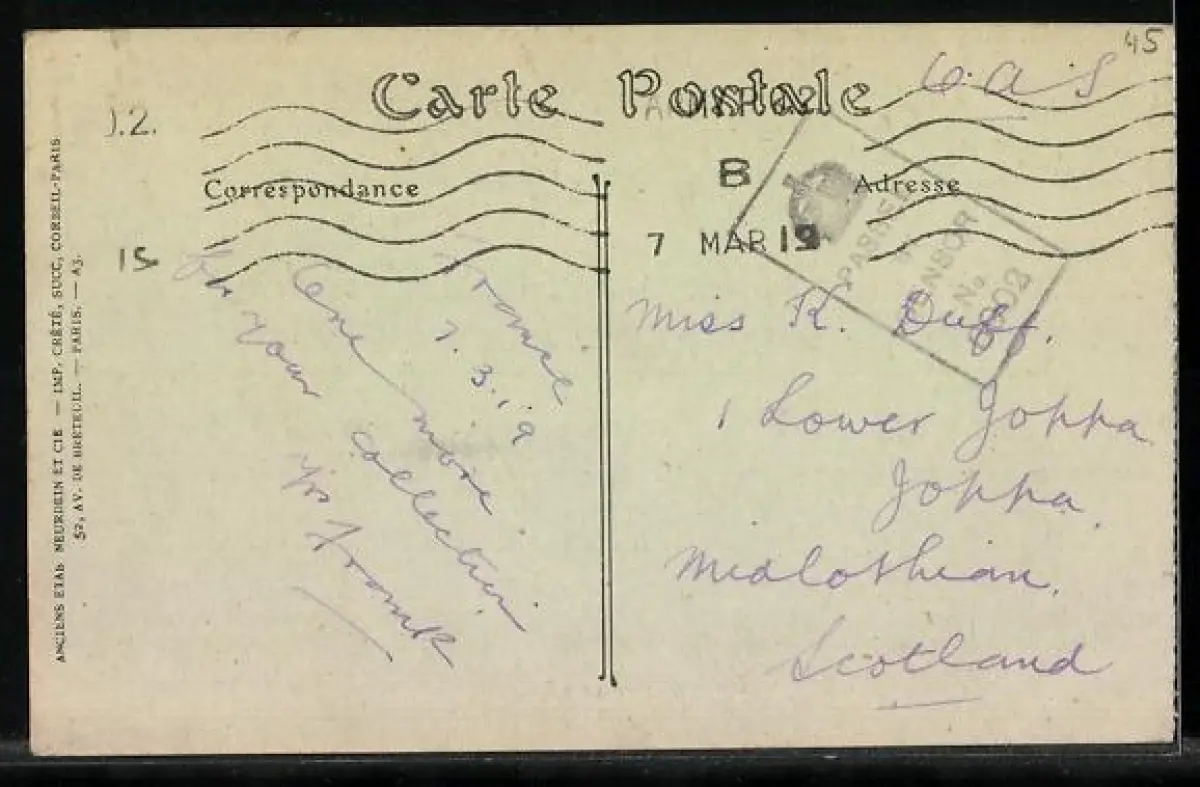 45
O A S
Carte Postale
J.2.
B
Correspondance
Adresse
7 MAR 19
15
PASSED
CENSOR
No
France
7.3.19
One more
for your collection
Yrs Frank
Miss K. Duff.
1 Lower Joppa
Joppa,
Midlothian,
Scotland
ANCIENS ETAB. NEURDEIN ET CIE — IMP. CRÉTÉ, SUCC, CORBEIL-PARIS
52, AV. DE BRETEUIL. — PARIS. — A3.